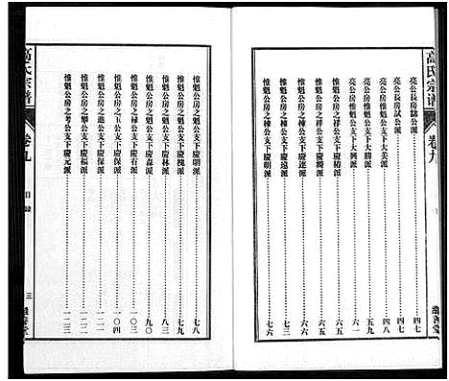 高氏宗谱
卷九
亮公長房誌公派 四七
亮公長房試公派 四七
亮公房惟魁公支下大美派 四八
亮公房惟魁公支下大勝派 五九
亮公房惟魁公支下大興派 六一
惟魁公房之祥公支下慶緒派 六五
惟魁公房之祥公支下慶騰派 六五
惟魁公房之棟公支下慶運派 六六
惟魁公房之棟公支下慶遠派 七三
惟魁公房之棟公支下慶朝派 七六
惟魁公房之魁公支下慶明派 七八
惟魁公房之魁公支下慶槐派 七九
惟魁公房之魁公支下慶林派 八三
惟魁公房之魁公支下慶森派 九〇
惟魁公房之棟公支下慶有派 一〇三
惟魁公房之萬公支下慶保派 一〇四
惟魁公房之進公支下慶保派 一二二
惟魁公房之攀公支下慶福派 一二二
惟魁公房之考公支下慶元派 一二三
高氏宗谱
卷九
目錄
三